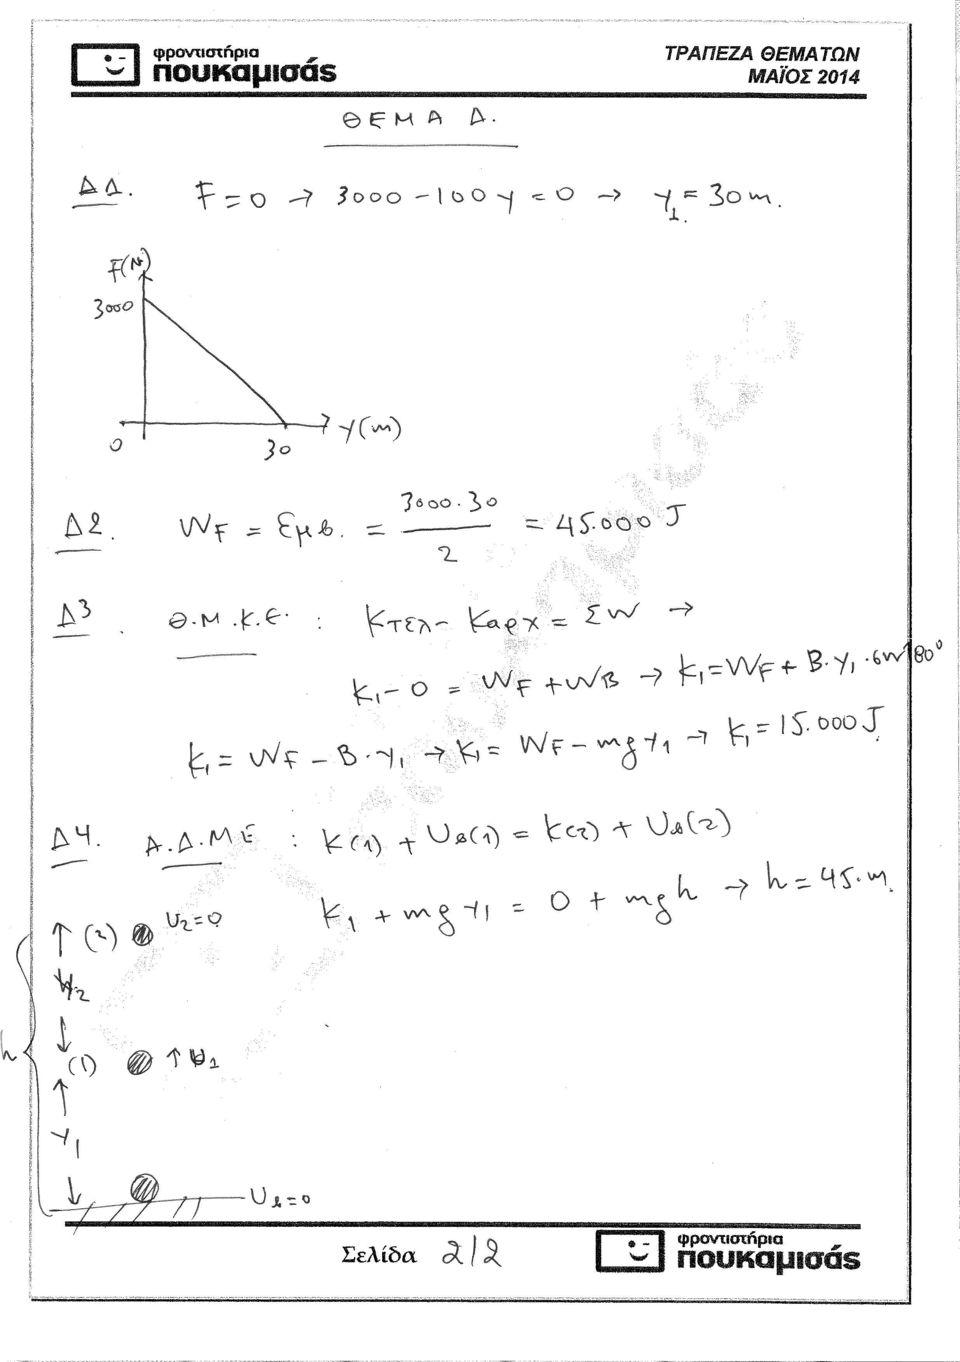 φροντιστήρια
πουκαμισάς
ΤΡΑΠΕΖΑ ΘΕΜΑΤΩΝ
ΜΑΪΟΣ 2014
ΘΕΜΑ Δ.
Δ1. F=0 → 3000-100y=0 → y₁=30m.
F(N)
3000
0 30 y(m)
Δ2. W_F = Εμβ. = 3000·30/2 = 45.000 J
Δ3. Θ.Μ.Κ.Ε. : Κτελ - Καρχ = ΣW →
K₁-0 = W_F + W_B → K₁=W_F + B·y₁·συν180⁰
K₁ = W_F - B·y₁ → K₁ = W_F - mgy₁ → K₁ = 15.000 J
Δ4. Α.Δ.Μ.Ε : K(1) + Uβ(1) = K(2) + Uβ(2)
K₁ + mgy₁ = 0 + mgh → h=45.m.
↑ (2) υ₂=0
y₂
h
↓ (1) ↑ υ₁
↑
y₁
↓ Uβ=0
Σελίδα 2/2
φροντιστήρια
πουκαμισάς